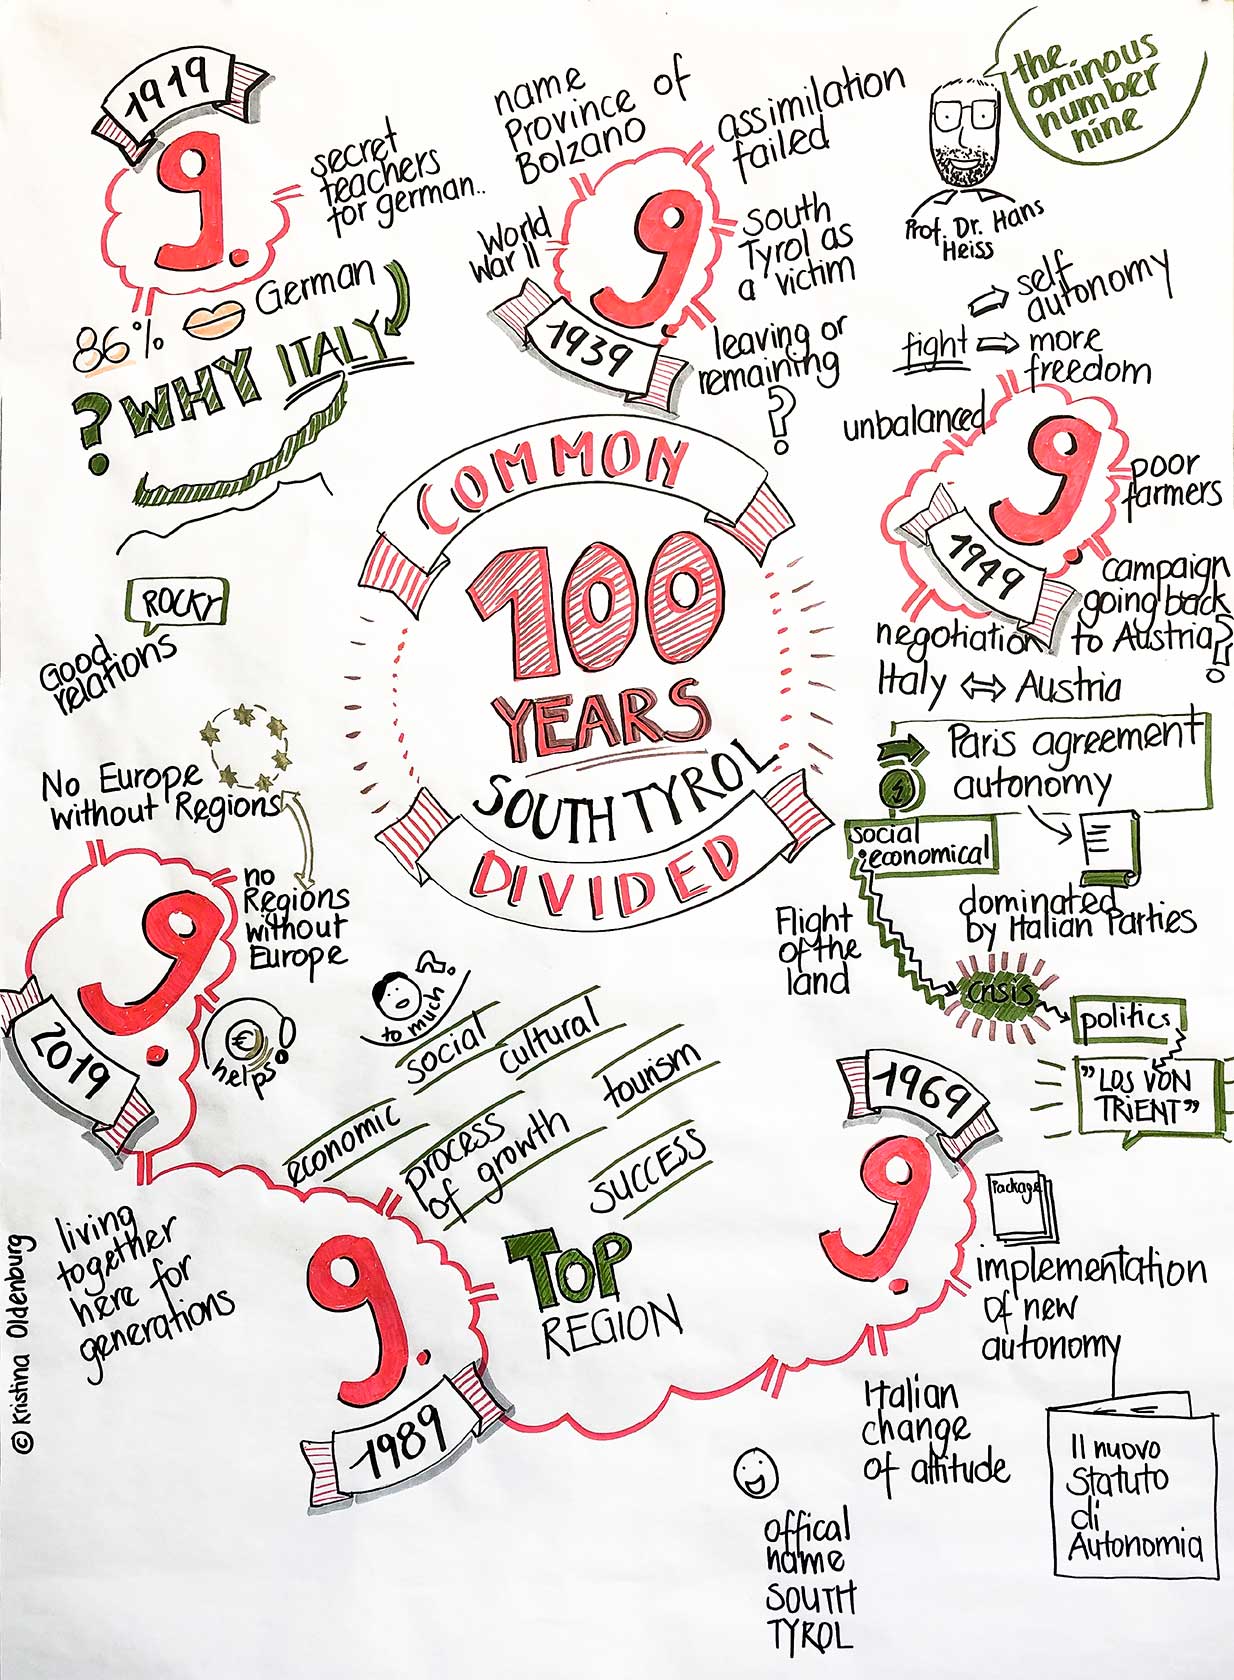 the
ominous
number
nine
Prof. Dr. Hans
Heiss
1919
9.
secret
teachers
for german..
86% German
? WHY ITALY
name
Province of
Bolzano
assimilation
failed
World
War II
9.
South
Tyrol as
a victim
1939
leaving or
remaining
?
self
autonomy
fight
more
freedom
unbalanced
9.
poor
farmers
1949
campaign
going back
to Austria?
negotiation
Italy ⇔ Austria
Paris agreement
autonomy
social
economical
dominated
by Italian Parties
Flight
of the
land
crisis
politics
"LOS VON
TRIENT"
COMMON
100
YEARS
SOUTH TYROL
DIVIDED
1969
9.
Package
implementation
of new
autonomy
Il nuovo
Statuto
di
Autonomia
Italian
change
of attitude
offical
name
SOUTH
TYROL
9.
1989
TOP
REGION
to much?
social
cultural
tourism
economic
process
of growth
success
ROCKY
Good
relations
No Europe
without Regions
no
Regions
without
Europe
9.
2019
€
helps!
living
together
here for
generations
© Kristina Oldenburg